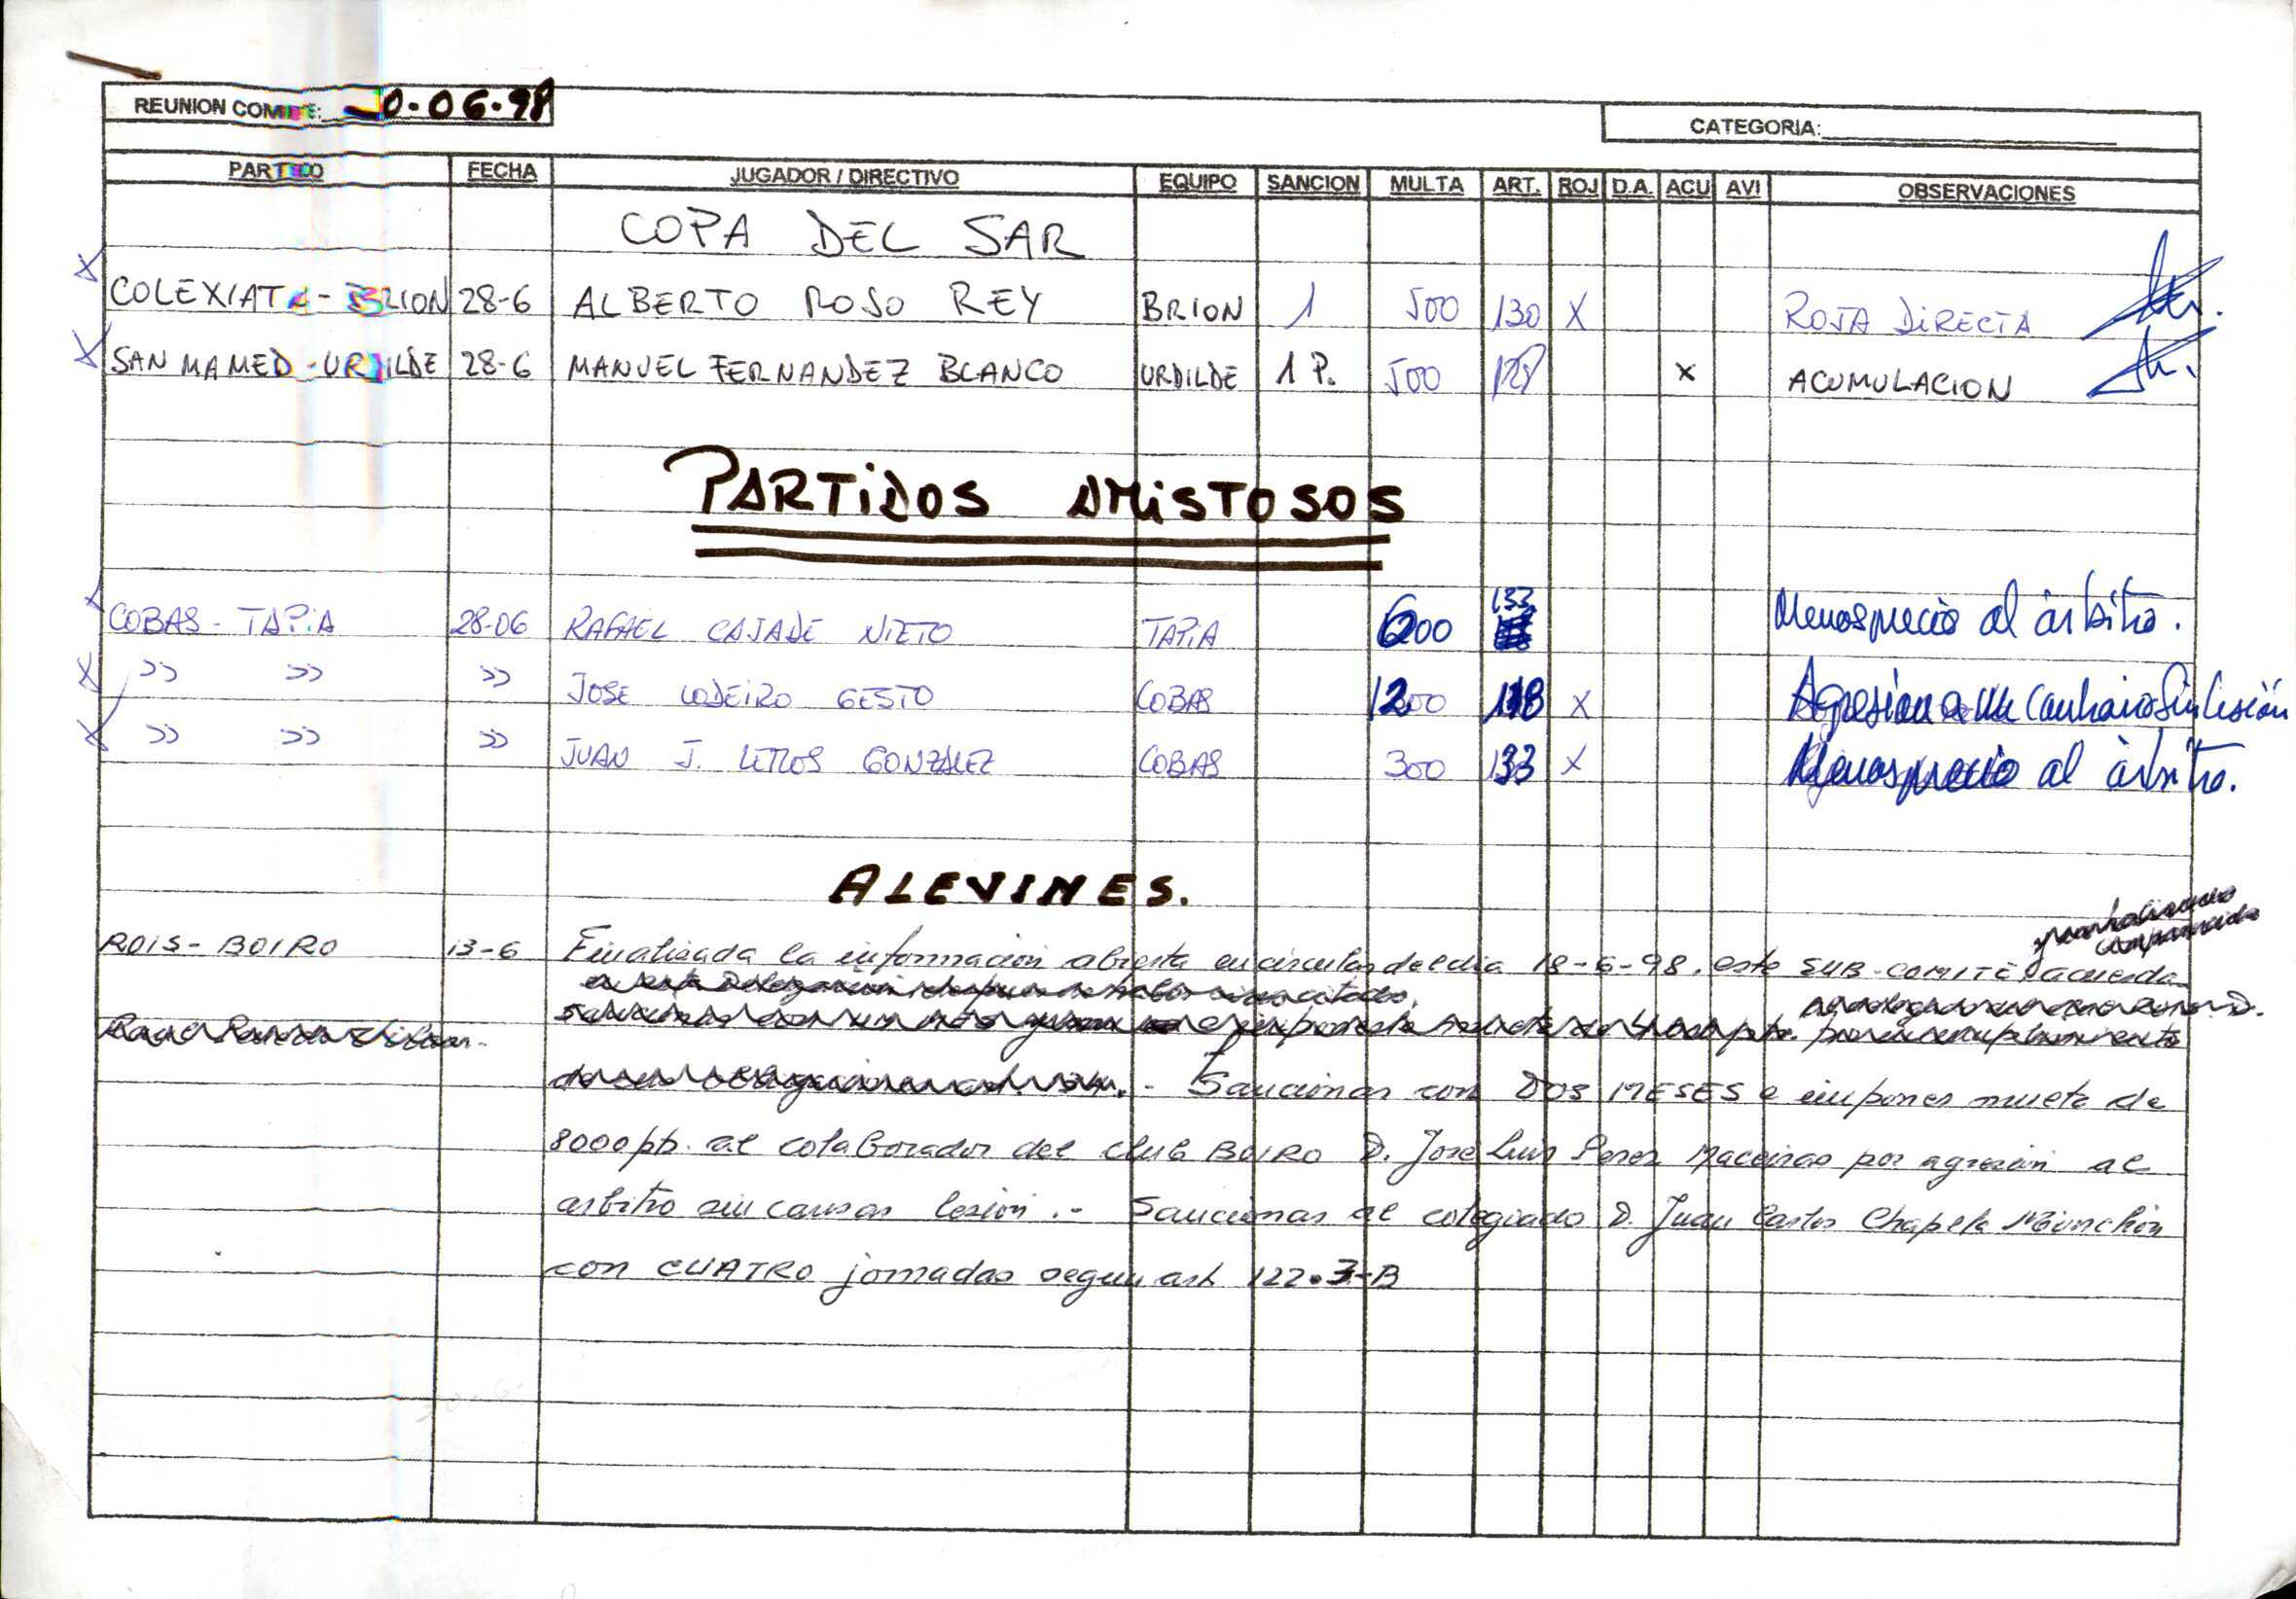 REUNION COMITE: 30-06-98
CATEGORIA:
PARTIDO FECHA JUGADOR / DIRECTIVO EQUIPO SANCION MULTA ART. ROJ D.A. ACU AVI OBSERVACIONES
COPA DEL SAR
X COLEXIATA - BRION 28-6 ALBERTO ROSO REY BRION 1 500 130 X ROJA DIRECTA
X SAN MAMED - URDILDE 28-6 MANUEL FERNANDEZ BLANCO URDILDE 1 P. 500 128 X ACUMULACION
PARTIDOS AMISTOSOS
COBAS - TAPIA 28-06 RAFAEL CAJADE NIETO TAPIA 600 133 Menosprecio al árbitro.
X » » » JOSE LODEIRO GESTO COBAS 1200 118 X Agresion a un contrario sin lesión
X » » » JUAN J. GONZALEZ COBAS 300 133 X Menosprecio al árbitro.
ALEVINES.
ROIS - BOIRO 13-6 Finalizada la informacion abierta en circular del dia 18-6-98, este SUB-COMITE acuerda
- Sancionar con DOS MESES e imponer multa de
8000 pts. al colaborador del Club BOIRO D. José Luis Perez Maceiras por agresion al
arbitro sin causar lesión .- Sancionar al colegiado D. Juan Carlos Chapela
con CUATRO jornadas segun art 122.3-B